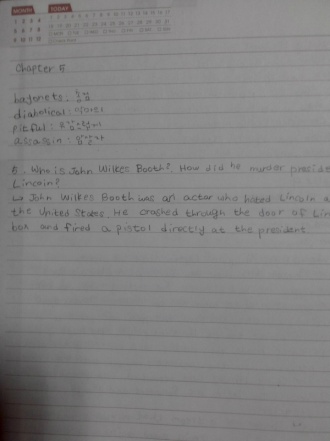 MONTH TODAY
Chapter 5
bayonets : 총검
diabolical : 악마의
pitiful :
assassin : 암살자
5. Who is John Wilkes Booth? How did he murder preside
Lincoln?
↳ John Wilkes Booth was an actor who hated Lincoln a
the United States. He crashed through the door of Lin
box and fired a pistol directly at the president.